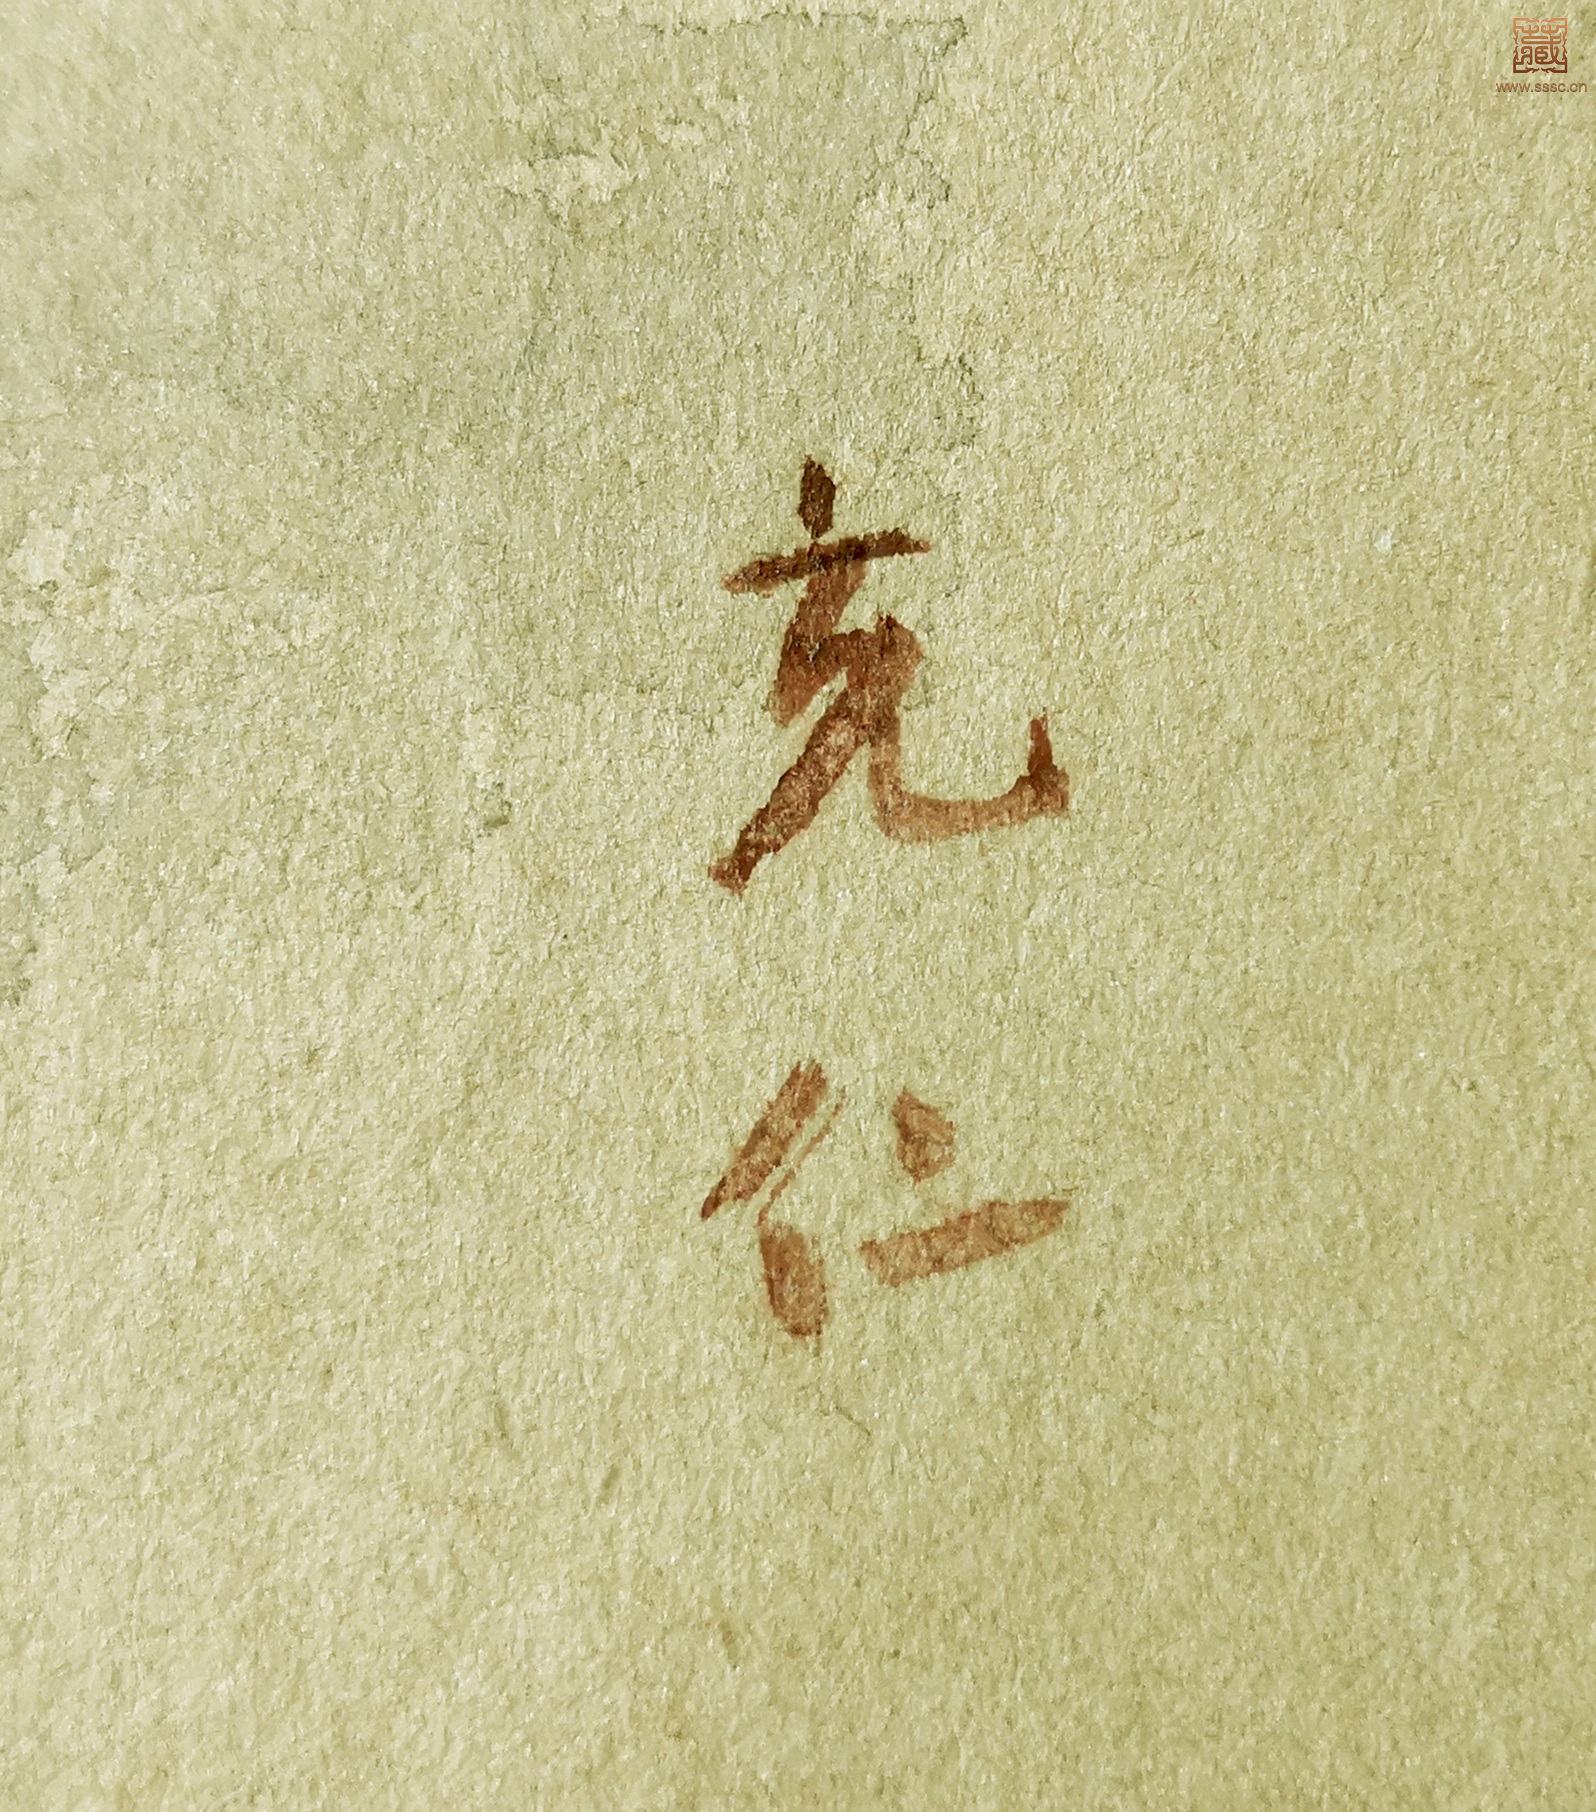 藏
www.sssc.cn
充仁